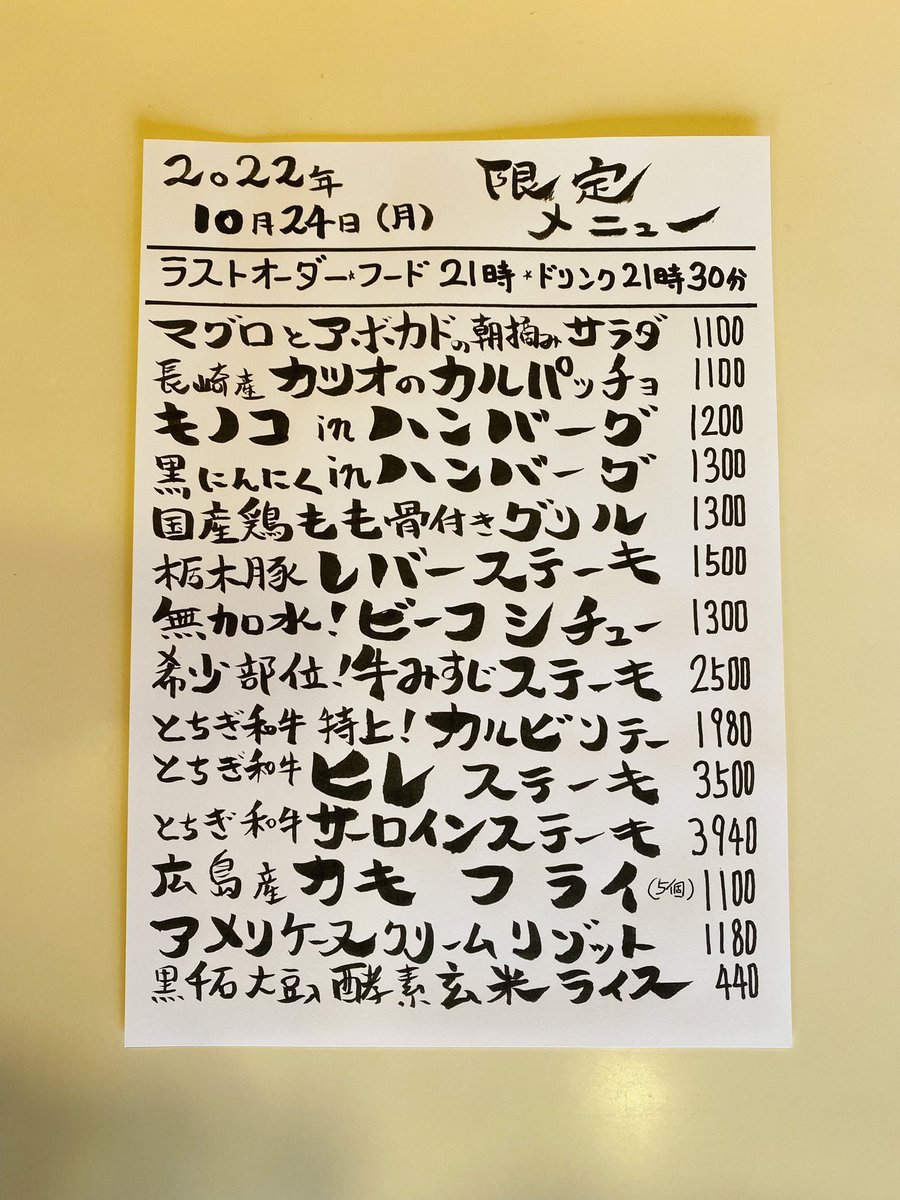 2022年
10月24日(月)
限定
メニュー
ラストオーダー*フード 21時 *ドリンク21時30分
マグロとアボカドの朝摘みサラダ 1100
長崎産 カツオのカルパッチョ 1100
キノコ in ハンバーグ 1200
黒にんにく in ハンバーグ 1300
国産鶏もも骨付きグリル 1300
栃木豚 レバーステーキ 1500
無加水!ビーフシチュー 1300
希少部位!牛みすじステーキ 2500
とちぎ和牛 特上!カルビソテー 1980
とちぎ和牛 ヒレ ステーキ 3500
とちぎ和牛 サーロインステーキ 3940
広島産 カキ フライ(5個) 1100
アメリケーヌクリームリゾット 1180
黒千石大豆入酵素玄米ライス 440